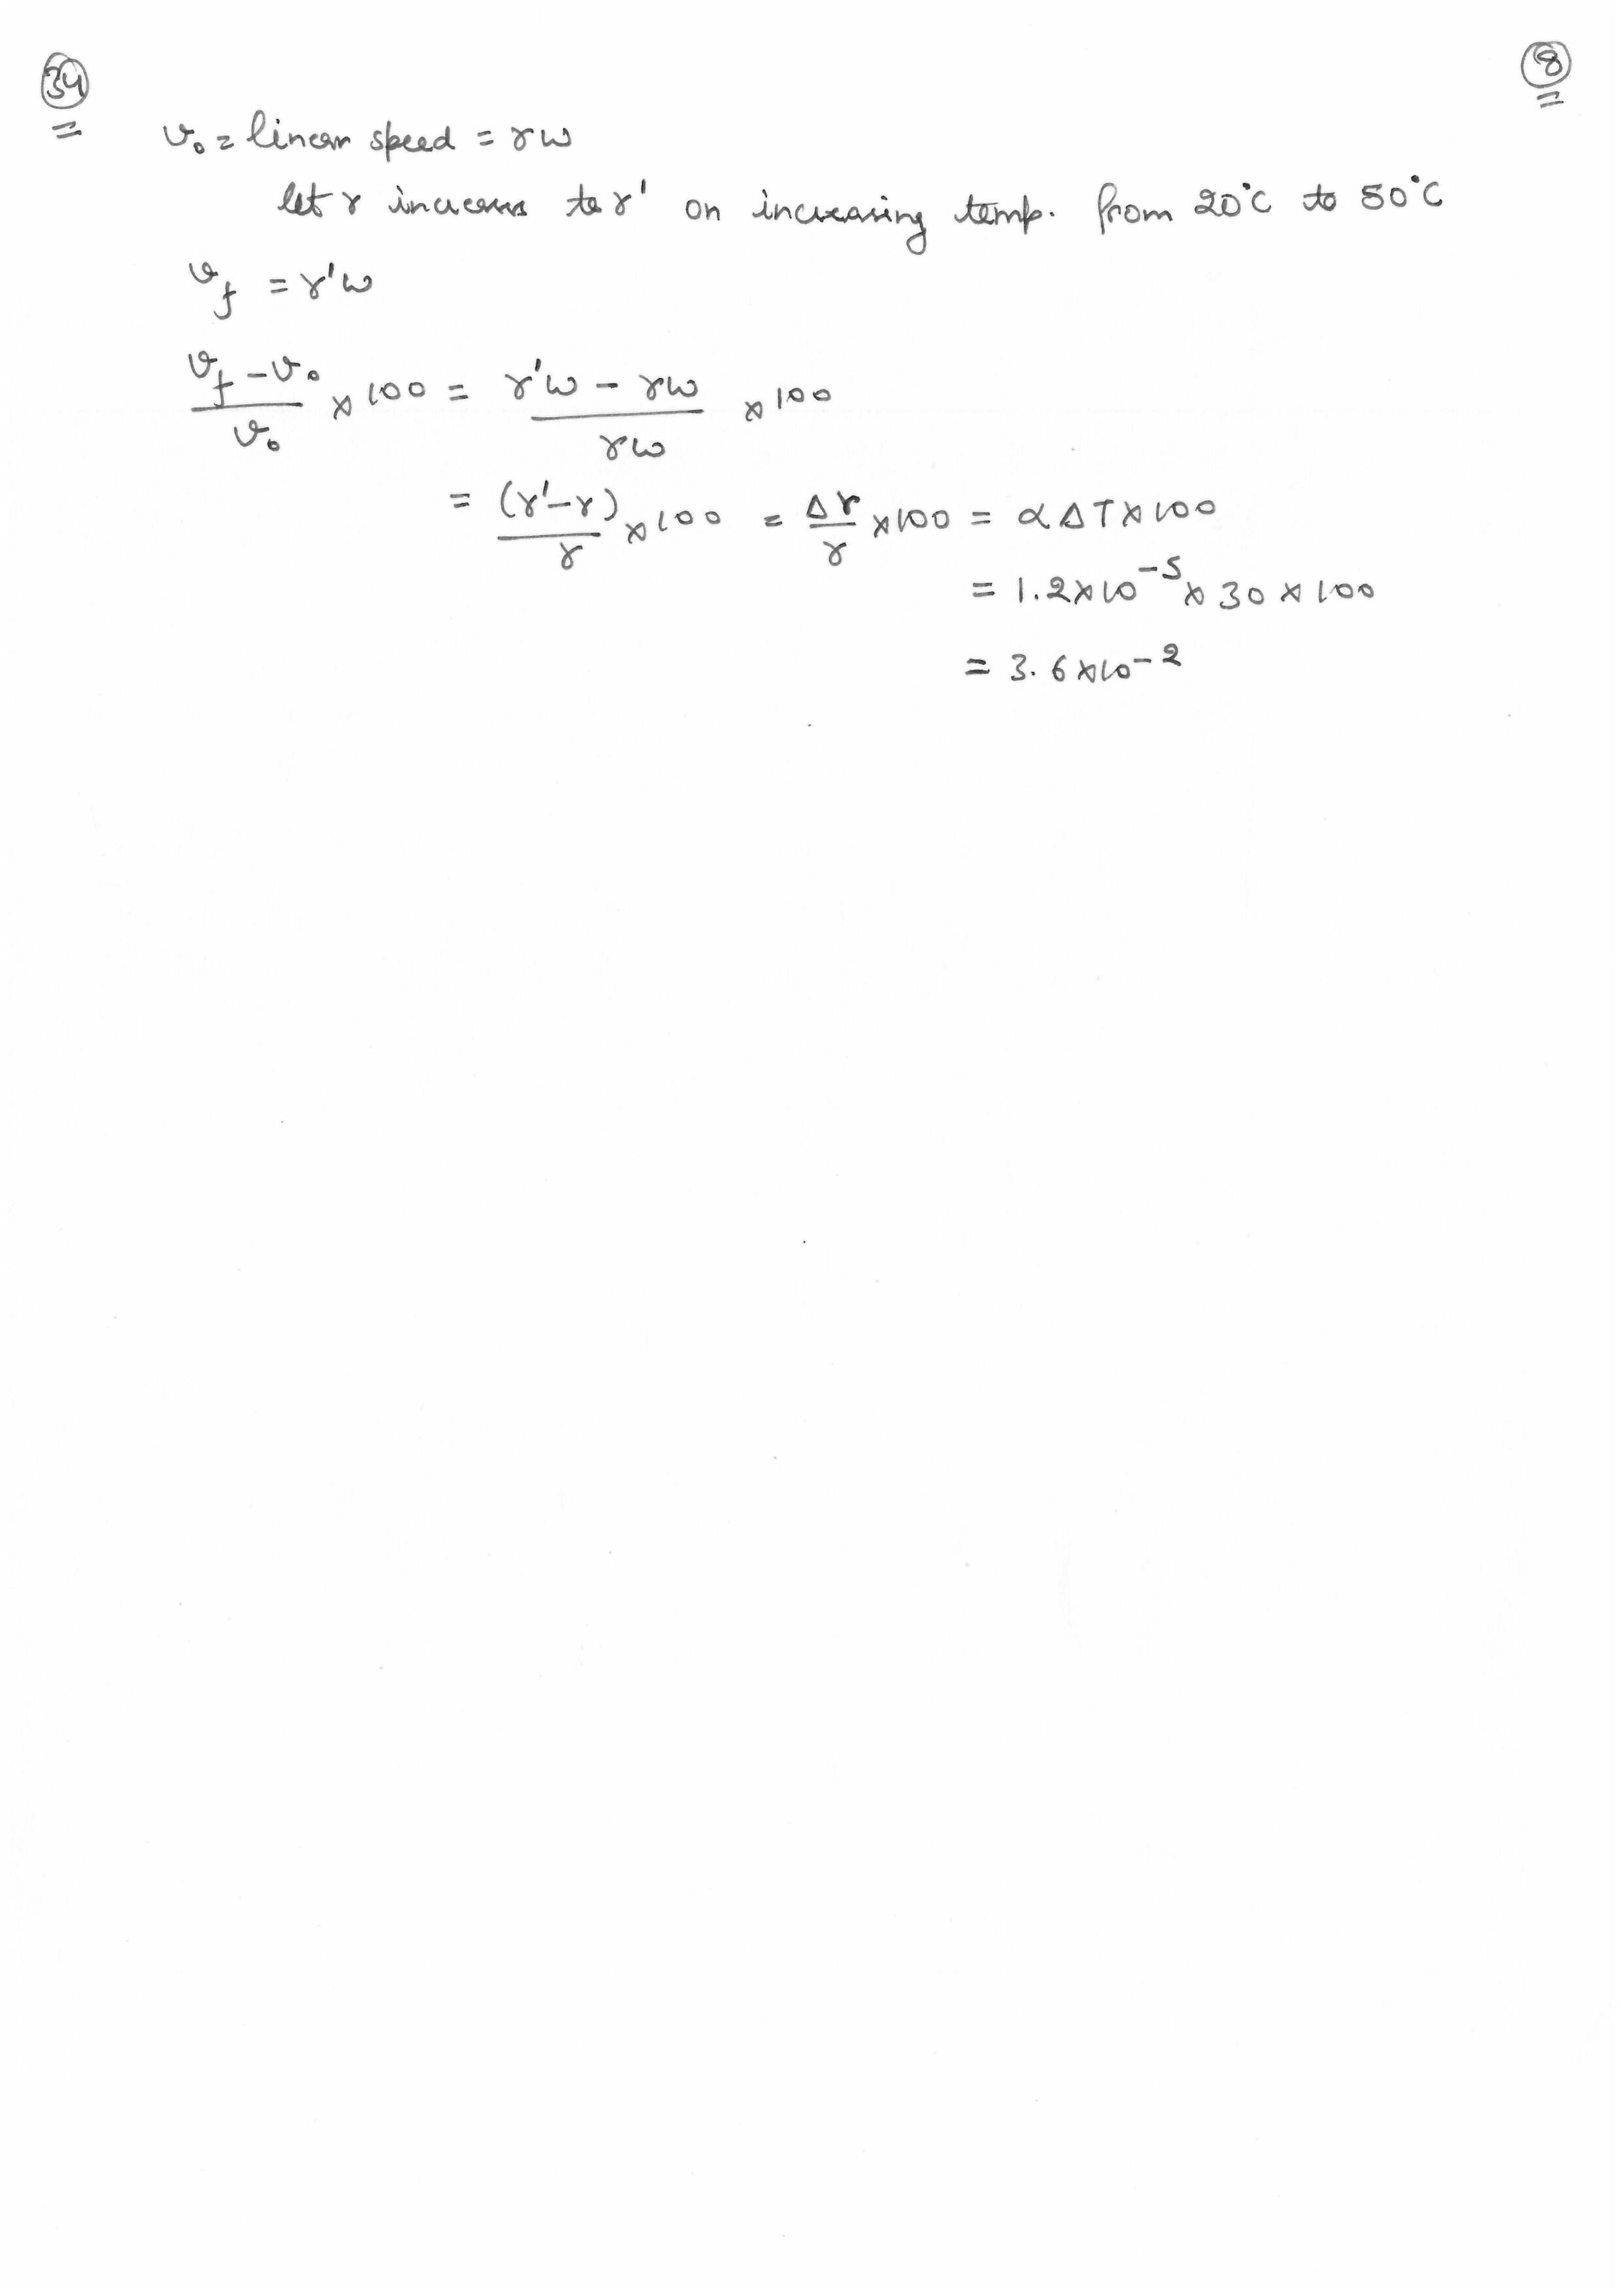 34
8
v₀ = linear speed = rω
let r increases to r' on increasing temp. from 20°C to 50°C
v_f = r'ω
(v_f - v₀)/v₀ × 100 = (r'ω - rω)/(rω) × 100
= (r' - r)/r × 100 = Δr/r × 100 = αΔT × 100
= 1.2 × 10⁻⁵ × 30 × 100
= 3.6 × 10⁻²